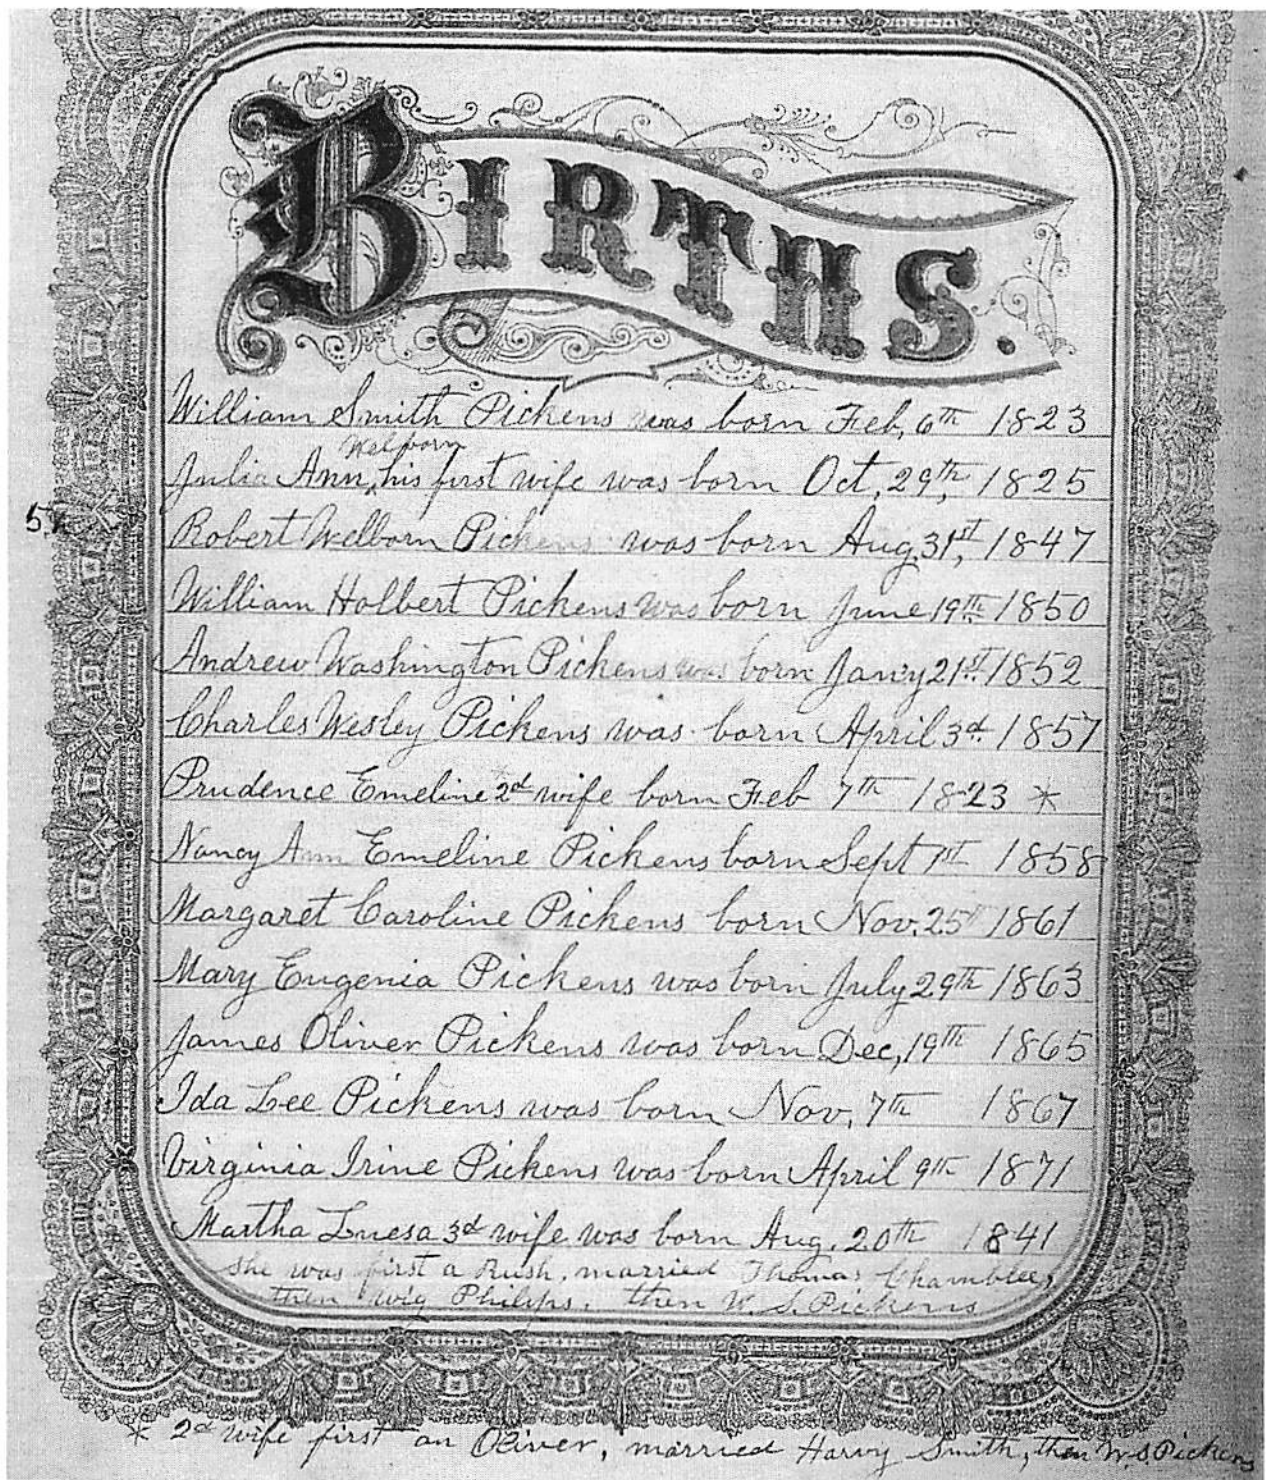 BIRTHS.
William Smith Pickens was born Feb, 6th 1823
Welborn
Julia Ann, his first wife was born Oct, 29th, 1825
Robert Welborn Pickens was born Aug, 31st, 1847
William Holbert Pickens was born June 19th 1850
Andrew Washington Pickens was born Jan'y 21st 1852
Charles Wesley Pickens was born April 3d. 1857
Prudence Emeline 2d wife born Feb 7th 1823 *
Nancy Ann Emeline Pickens born Sept 1st 1858
Margaret Caroline Pickens born Nov, 25th 1861
Mary Eugenia Pickens was born July 29th 1863
James Oliver Pickens was born Dec, 19th 1865
Ida Lee Pickens was born Nov, 7th 1867
Virginia Irine Pickens was born April 9th 1871
Martha Luesa 3d wife was born Aug. 20th 1841
she was first a Rush, married Thomas Chamblee,
then Wig Philips, then W. S. Pickens
* 2d wife first an Oliver, married Harvy Smith, then W. S. Pickens